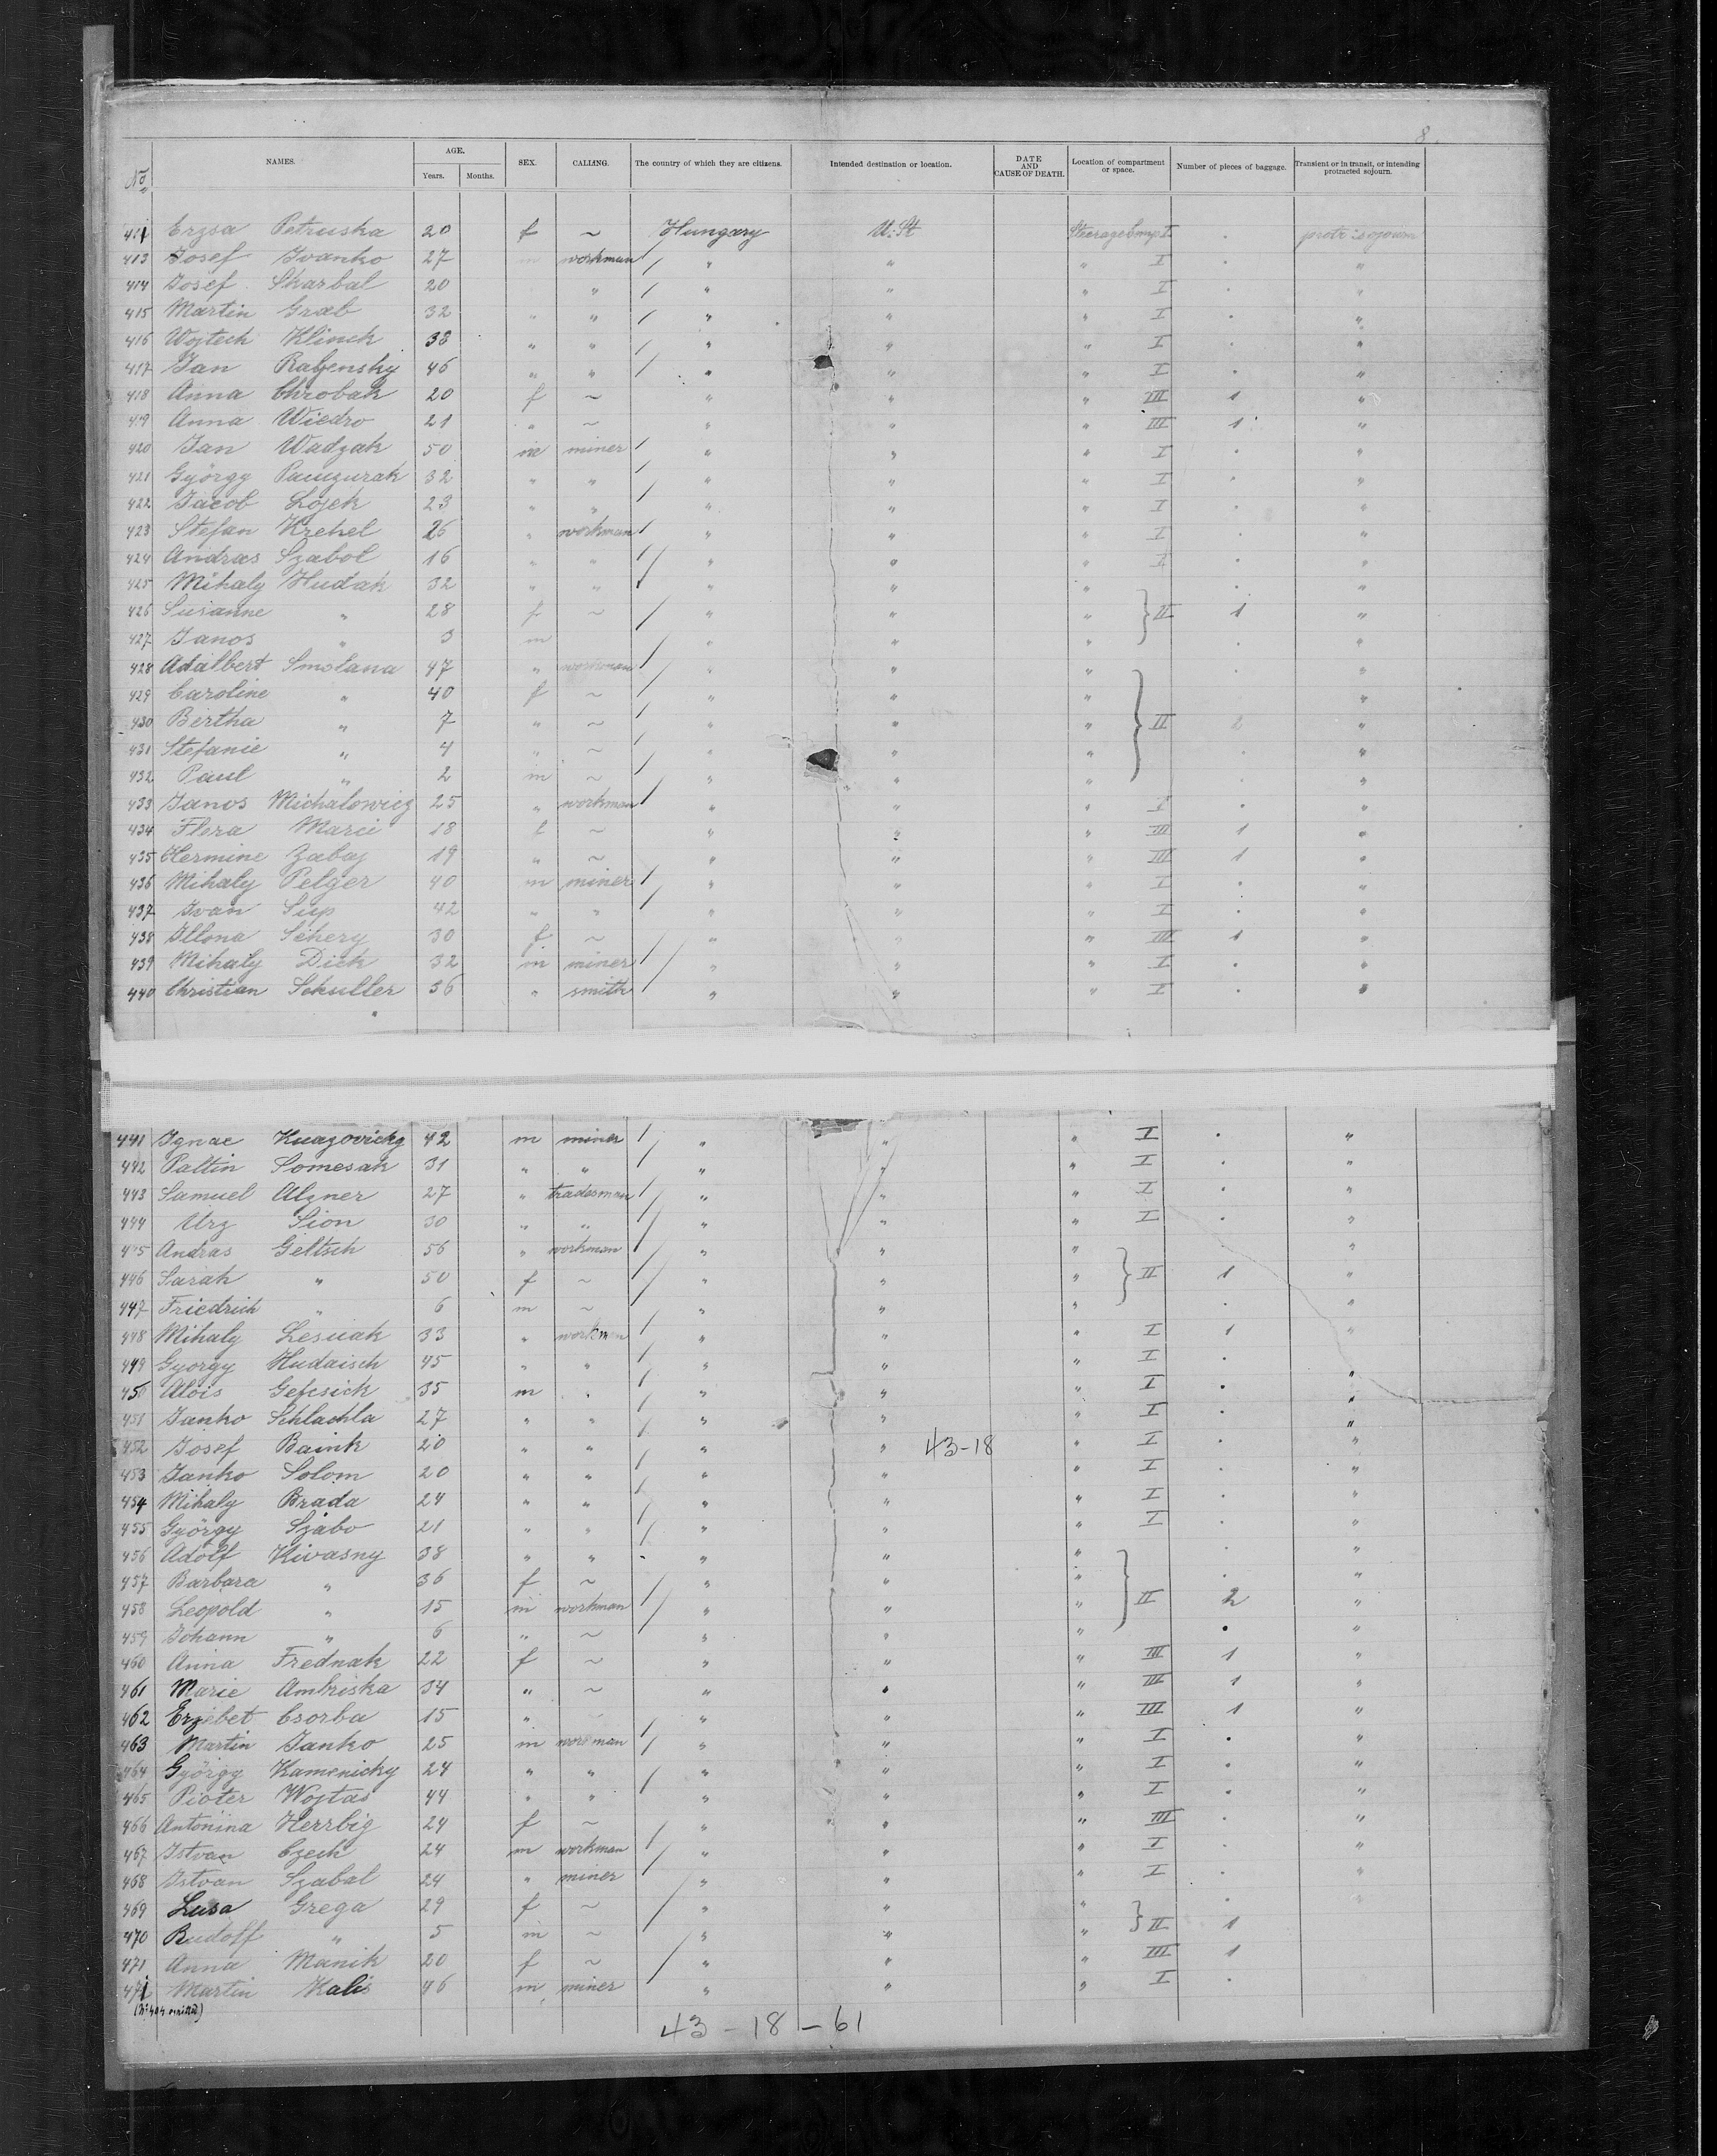 8.
No. NAMES. AGE. Years. Months. SEX. CALLING. The country of which they are citizens. Intended destination or location. DATE AND CAUSE OF DEATH. Location of compartment or space. Number of pieces of baggage. Transient or in transit, or intending protracted sojourn.
411 Erzsa Petruska 20 f ~ Hungary U.St Steerage Cmp. I . protr. sojourn
413 Josef Ivanko 27 m workman / " " " I . "
414 Josef Skarbal 20 " / " " " I . "
415 Martin Grab 32 " " / " " " I . "
416 Wojtech Klinek 38 " " / " " " I . "
417 Jan 46 " " / " " " I . "
418 Anna Chrobak 20 f ~ " " " III 1 "
419 Anna Wiedro 21 " ~ " " " III 1 "
420 Jan Wadzak 50 m miner / " " " I . "
421 György 32 " " / " " " I . "
422 Jacob Lojek 23 " " / " " " I . "
423 Stefan Krehel 26 " workman / " " " I . "
424 Andras Szabol 16 " " / " " " I . "
425 Mihaly Hudak 32 " " / " " " . "
426 Susanne " 28 f ~ / " " " } II 1 "
427 Janos " 3 m " " " . "
428 Adalbert Smolana 47 " workman / " " " . "
429 Caroline " 40 f ~ / " " " "
430 Bertha " 7 " ~ / " " " } II 2 "
431 Stefanie " 4 " ~ / " " " . "
432 Paul " 2 m ~ / " " " . "
433 Janos Michalowicz 25 " workman / " " " I . "
434 Flora Marci 18 f ~ " " " III 1 "
435 Hermine Zabaj 19 " ~ " " " III 1 "
436 Mihaly Pelger 40 m miner / " " " I . "
437 Ivan Sup 42 " " / " " " I . "
438 Illona Schery 30 f ~ " " " III 1 "
439 Mihaly Dick 32 m miner / " " " I . "
440 Christian Schuller 36 " smith / " " " I . "
441 Ignac 42 m miner / " " " I . "
442 Paltin Somesak 31 " " / " " " I . "
443 Samuel Alzner 27 " tradesman / " " " I . "
444 Urz Sion 30 " " / " " " I . "
445 Andras Geltsch 56 " workman / " " " "
446 Sarah " 50 f ~ / " " " } II 1 "
447 Friedrich " 6 m ~ / " " " . "
448 Mihaly Lesnak 33 " workman / " " " I 1 "
449 Gyorgy Hudaisch 45 " " / " " " I . "
450 Alois Gefesick 35 m . / " " " I . "
451 Janko Schlachla 27 " " / " " " I . "
452 Josef Baink 20 " " / " " 43-18 " I . "
453 Janko Solom 20 " " / " " " I . "
454 Mihaly Brada 24 " " / " " " I . "
455 György Szabo 21 " " / " " " I . "
456 Adolf Kwasny 38 " " " " " . "
457 Barbara " 36 f ~ / " " " . "
458 Leopold " 15 m workman / " " " } II 2 "
459 Johann " 6 " ~ " " " . "
460 Anna Frednak 22 f ~ " " " III 1 "
461 Marie Ambriska 34 " ~ " " " III 1 "
462 Erzebet Csorba 15 " ~ " " " III 1 "
463 Martin Janko 25 m workman / " " " I . "
464 György Kamenicky 24 " " / " " " I . "
465 Pioter Wojtas 44 " " / " " " I . "
466 Antonina Herrbig 24 f ~ / " " " III . "
467 Istvan Czech 24 m workman / " " " I . "
468 Istvan Szabal 24 " miner / " " " I . "
469 Lusa Grega 29 f ~ / " " " . "
470 Rudolf " 5 m ~ / " " " } II 1
471 Anna Manik 20 f ~ / " " " III 1
471 Martin Kalis 46 m miner " " " I .
(No 404 omitted)
43-18-61